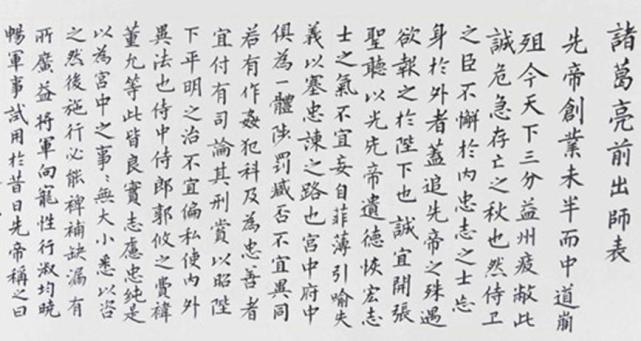 諸葛亮前出師表
先帝創業未半而中道崩
殂今天下三分益州疲敝此
誠危急存亡之秋也然侍卫
之臣不懈於内忠志之士忘
身於外者蓋追先帝之殊遇
欲報之於陛下也誠宜開張
聖聽以光先帝遺德恢宏志
士之氣不宜妄自菲薄引喻失
義以塞忠諫之路也宮中府中
俱為一體陟罰臧否不宜異同
若有作姦犯科及為忠善者
宜付有司論其刑賞以昭陛
下平明之治不宜偏私使内外
異法也侍中侍郎郭攸之費禕
董允等此皆良實志慮忠純是
以為宮中之事〻無大小悉以咨
之然後施行必能裨補缺漏有
所廣益將軍向寵性行淑均曉
暢軍事試用於昔日先帝稱之曰